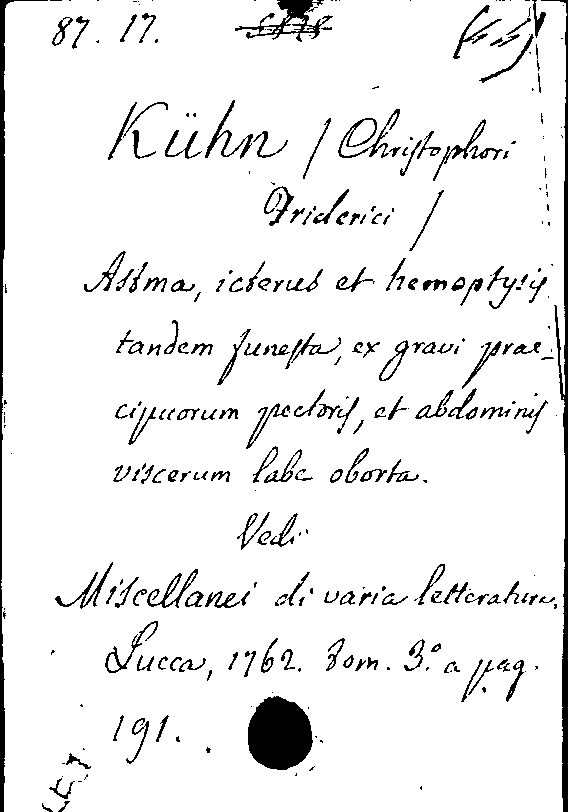 87. 17. 5878
Kühn / Christophori
Friderici /
Astma, icterus et hemoptysis
tandem funesta, ex gravi prae-
cipuorum pectoris, et abdominis
viscerum labe oborta.
Vedi
Miscellanei di varia letteratura.
Lucca, 1762. Tom. 3.º a pag.
191.